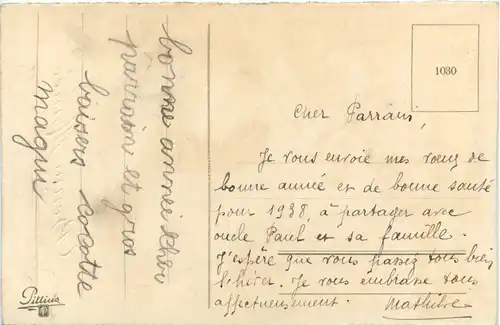 bonne année cher
parrain et gros
baisers cocotte
magui
1030
Cher Parrain,
Je vous envoie mes voeux de
bonne année et de bonne santé
pour 1938, à partager avec
oncle Paul et sa famille.
J'espère que vous passez tous bien
l'hiver. Je vous embrasse tous
affectueusement. Mathilde
Pittius